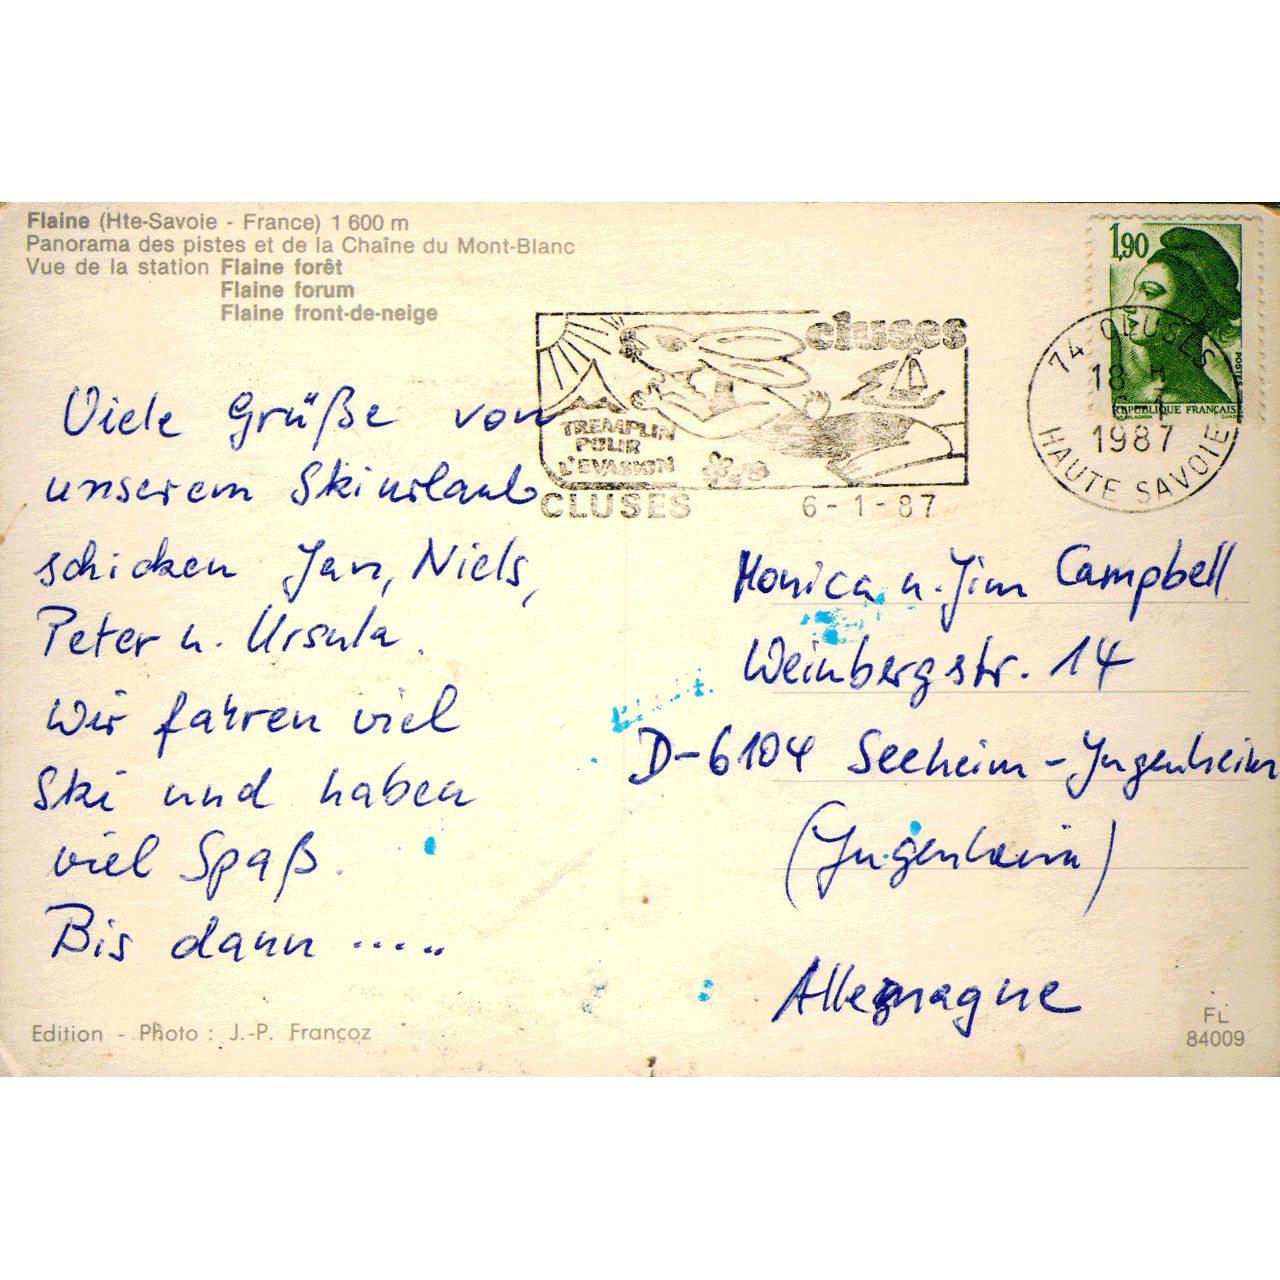 Flaine (Hte-Savoie - France) 1 600 m
Panorama des pistes et de la Chaîne du Mont-Blanc
Vue de la station Flaine forêt
Flaine forum
Flaine front-de-neige
1,90
POSTES
RÉPUBLIQUE FRANÇAISE
cluses
TREMPLIN
POUR
L'EVASION
CLUSES
6-1-87
74 CLUSES
18 H
6-1
1987
HAUTE SAVOIE
Viele Grüße von
unserem Skiurlaub
schicken Jan, Niels,
Peter u. Ursula.
Wir fahren viel
Ski und haben
viel Spaß.
Bis dann .....
Monica u. Jim Campbell
Weinbergstr. 14
D-6104 Seeheim-Jugenheim
(Jugenheim)
Allemagne
Edition - Photo : J.-P. Françoz
FL
84009